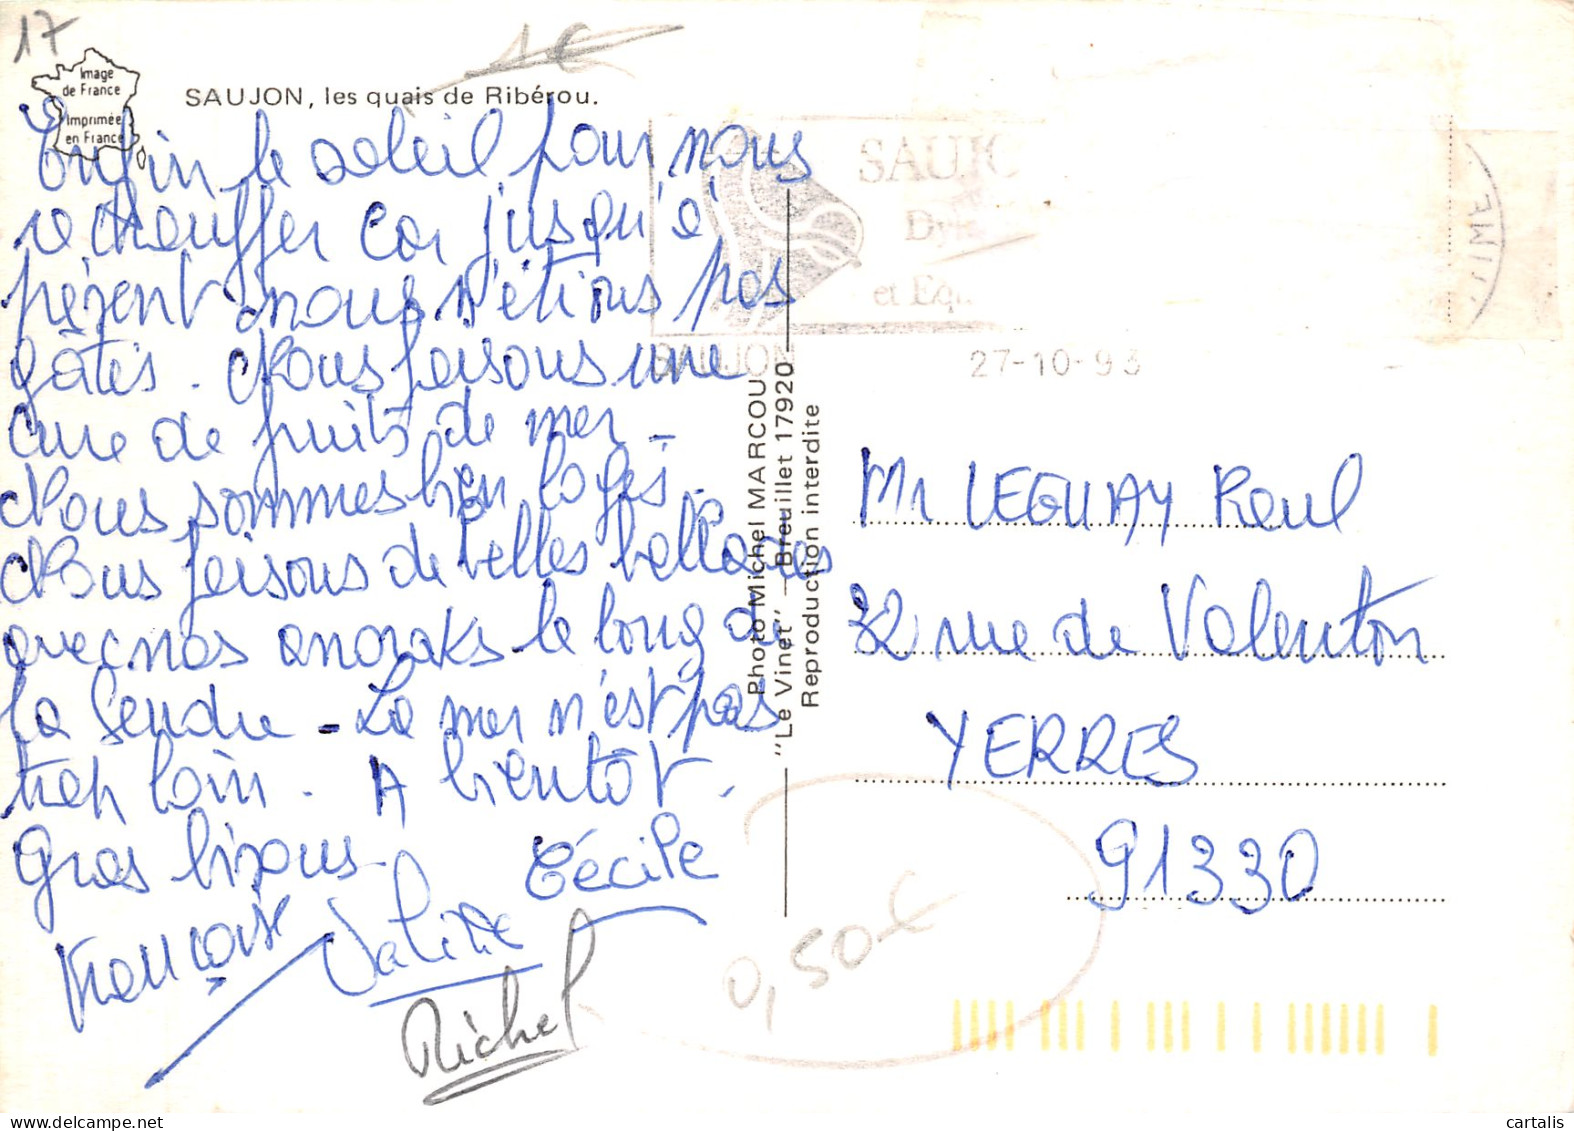 17
1€
Image
de France
Imprimée
en France
SAUJON, les quais de Ribérou.
Enfin le soleil pour nous
rechauffer car jusqu'à
présent nous n'étions pas
gâtés. Nous faisons une
cure de fruits de mer.
Nous sommes bien logés.
Nous faisons de belles ballades
avec nos anoraks le long de
la Seudre - La mer n'est pas
très loin. A bientôt.
Gros bisous.
Cécile
Françoise
Valérie
Michel
Photo Michel MARCOU
"Le Vinet" - Breuillet 17920
Reproduction interdite
SAUJO
et Equ
SAUJON
27-10-93
Mr LEGUAY Raoul
32 rue de Valenton
YERRES
91330
0,50€
delcampe.net
cartalis